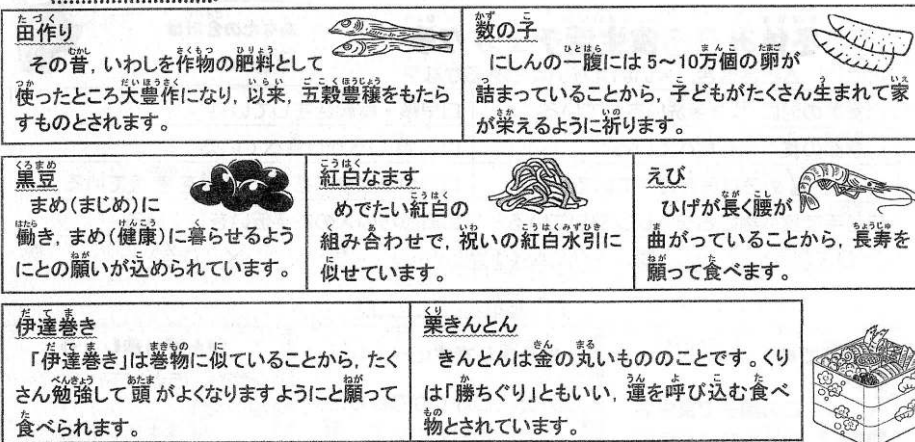 田作り
その昔，いわしを作物の肥料として
使ったところ大豊作になり，以来，五穀豊穣をもたら
すものとされます。
数の子
にしんの一腹には5～10万個の卵が
詰まっていることから，子どもがたくさん生まれて家
が栄えるように祈ります。
黒豆
まめ(まじめ)に
働き，まめ(健康)に暮らせるよう
にとの願いが込められています。
紅白なます
めでたい紅白の
組み合わせで，祝いの紅白水引に
似せています。
えび
ひげが長く腰が
曲がっていることから，長寿を
願って食べます。
伊達巻き
「伊達巻き」は巻物に似ていることから，たく
さん勉強して頭がよくなりますようにと願って
食べられます。
栗きんとん
きんとんは金の丸いもののことです。くり
は「勝ちぐり」ともいい，運を呼び込む食べ
物とされています。